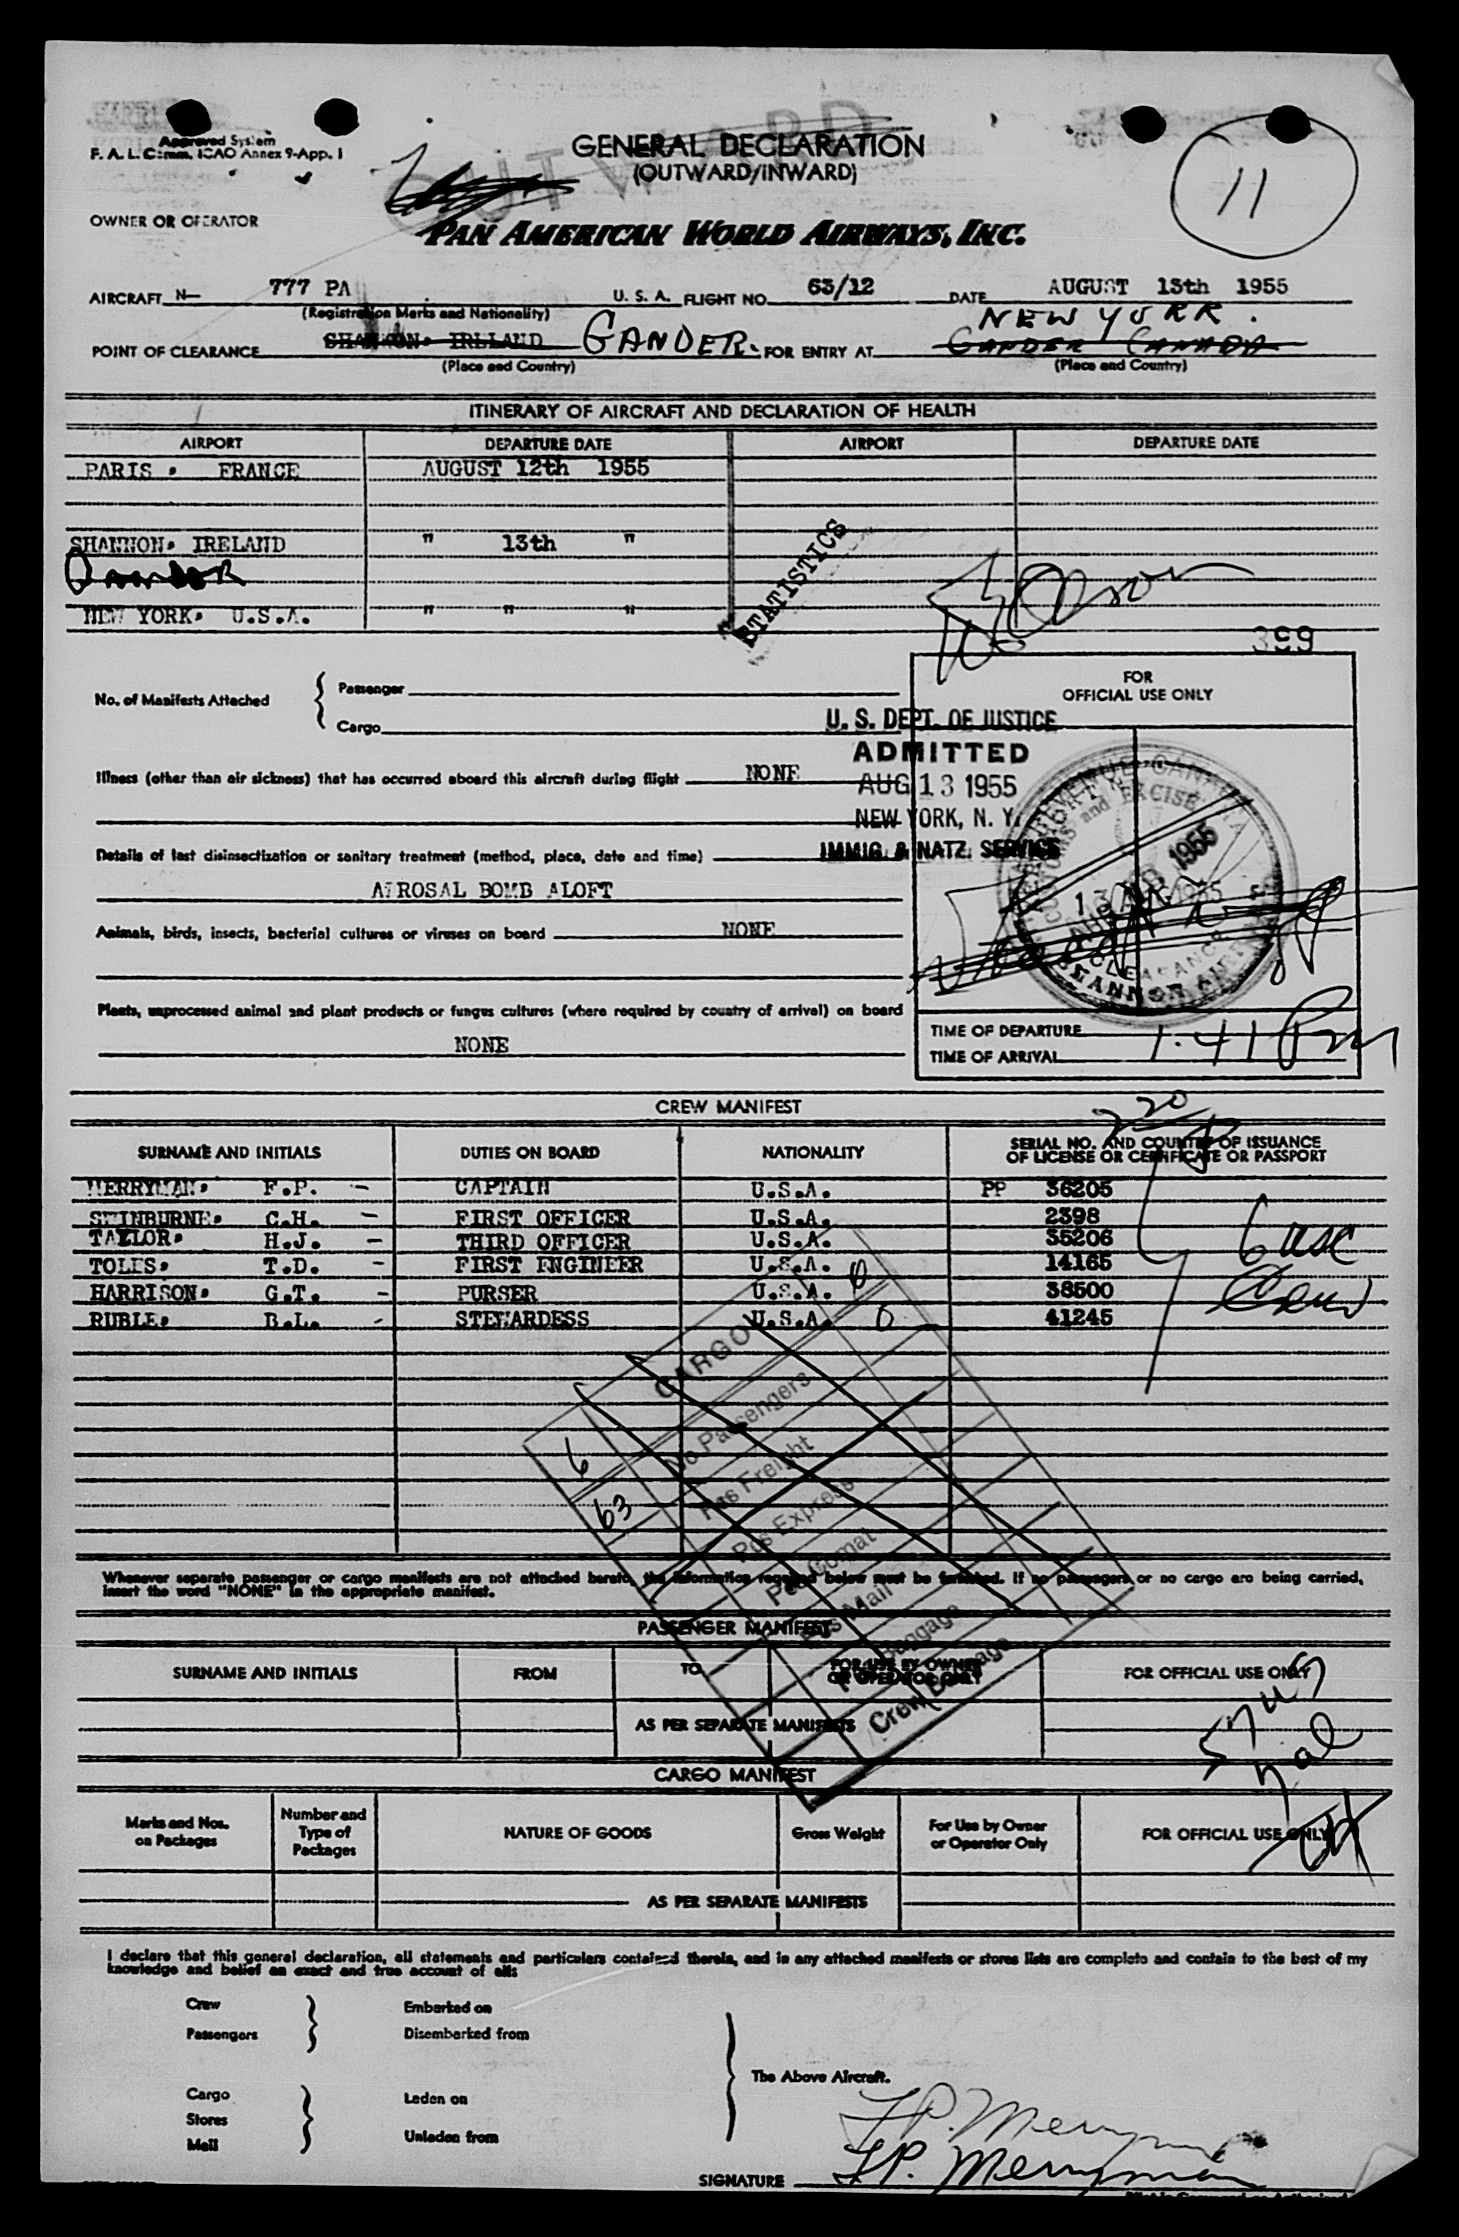 Approved System
F. A. L. Comm. ICAO Annex 9-App. I
OUTWARD
GENERAL DECLARATION
(OUTWARD/INWARD)
11
OWNER OR OPERATOR
PAN AMERICAN WORLD AIRWAYS, INC.
AIRCRAFT N- 777 PA U. S. A. FLIGHT NO. 63/12 DATE AUGUST 13th 1955
(Registration Marks and Nationality)
NEW YORK.
POINT OF CLEARANCE SHANNON. IRELAND GANDER. FOR ENTRY AT GANDER CANADA
(Place and Country) (Place and Country)
ITINERARY OF AIRCRAFT AND DECLARATION OF HEALTH
AIRPORT DEPARTURE DATE AIRPORT DEPARTURE DATE
PARIS. FRANCE AUGUST 12th 1955
SHANNON. IRELAND " 13th "
GANDER
NEW YORK. U.S.A. " " "
STATISTICS
399
No. of Manifests Attached { Passenger
Cargo
FOR
OFFICIAL USE ONLY
U. S. DEPT. OF JUSTICE
ADMITTED
AUG 13 1955
NEW YORK, N. Y.
IMMIG. & NATZ. SERVICE
Illness (other than air sickness) that has occurred aboard this aircraft during flight NONE
Details of last disinsectization or sanitary treatment (method, place, date and time)
AEROSAL BOMB ALOFT
Animals, birds, insects, bacterial cultures or viruses on board NONE
Plants, unprocessed animal and plant products or fungus cultures (where required by country of arrival) on board
NONE
TIME OF DEPARTURE
TIME OF ARRIVAL 1.41 Pm
220
CREW MANIFEST
SURNAME AND INITIALS DUTIES ON BOARD NATIONALITY SERIAL NO. AND COUNTRY OF ISSUANCE
OF LICENSE OR CERTIFICATE OR PASSPORT
MERRYMAN. F.P. - CAPTAIN U.S.A. PP 36205
SWINBURNE. C.H. - FIRST OFFICER U.S.A. 2398
TAYLOR. H.J. - THIRD OFFICER U.S.A. 35206
TOLES. T.D. - FIRST ENGINEER U.S.A. 14165
HARRISON. G.T. - PURSER U.S.A. 38500
RUBLE. B.L. - STEWARDESS U.S.A. 41245
6 USC
Crew
CARGO
6 No Passengers
63 Pcs Freight
Pcs Express
Pcs Comat
Pcs Mail
Baggage
Crew Baggage
Whenever separate passenger or cargo manifests are not attached hereto, the information required below must be furnished. If no passengers or no cargo are being carried,
insert the word "NONE" in the appropriate manifest.
PASSENGER MANIFEST
SURNAME AND INITIALS FROM TO FOR USE BY OWNER
OR OPERATOR ONLY FOR OFFICIAL USE ONLY
AS PER SEPARATE MANIFESTS
CARGO MANIFEST
Marks and Nos.
on Packages Number and
Type of
Packages NATURE OF GOODS Gross Weight For Use by Owner
or Operator Only FOR OFFICIAL USE ONLY
AS PER SEPARATE MANIFESTS
I declare that this general declaration, all statements and particulars contained therein, and in any attached manifests or stores lists are complete and contain to the best of my
knowledge and belief an exact and true account of all:
Crew Embarked on
Passengers Disembarked from
The Above Aircraft.
Cargo Laden on
Stores
Mail Unladen from
F.P. Merryman
SIGNATURE F.P. Merryman